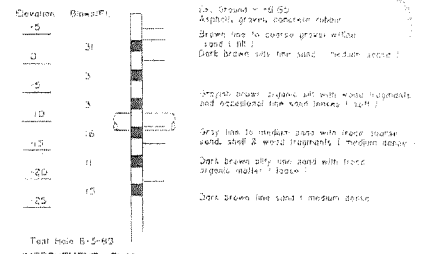 Elevation Blows/Ft.
Ground
-5
Asphalt, gravel, concrete rubble
Brown fine to coarse gravel
sand ( fill )
31
Dark brown silty fine sand medium dense )
0
3
-5
Grayish brown organic silt with wood fragments
and occasional fine sand lenses ( soft )
3
-10
16
Gray fine to medium sand with trace
sand, shell & wood fragments ( medium dense )
-15
11
Dark brown silty fine sand with trace
organic matter ( loose )
-20
15
Dark brown fine sand ( medium dense
-25
Test Hole